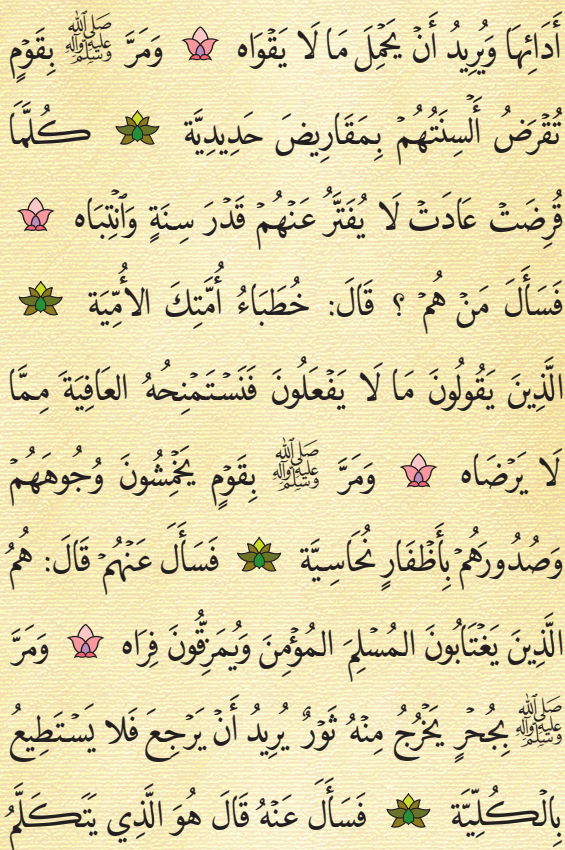 أَدَائِهَا وَيُرِيدُ أَنْ يَحْمِلَ مَا لَا يَقْوَاه وَمَرَّ ﷺ بِقَوْمٍ
تُقْرَضُ أَلْسِنَتُهُمْ بِمَقَارِيضَ حَدِيدِيَّة كُلَّمَا
قُرِضَتْ عَادَتْ لَا يُفَتَّرُ عَنْهُمْ قَدْرَ سِنَةٍ وَانْتِبَاه
فَسَأَلَ مَنْ هُمْ ؟ قَالَ: خُطَبَاءُ أُمَّتِكَ الأُمِّيَة
الَّذِينَ يَقُولُونَ مَا لَا يَفْعَلُونَ فَنَسْتَمْنِحُهُ العَافِيَةَ مِمَّا
لَا يَرْضَاه وَمَرَّ ﷺ بِقَوْمٍ يَخْمِشُونَ وُجُوهَهُمْ
وَصُدُورَهُمْ بِأَظْفَارٍ نُحَاسِيَّة فَسَأَلَ عَنْهُمْ قَالَ: هُمُ
الَّذِينَ يَغْتَابُونَ المُسْلِمَ المُؤْمِنَ وَيُمَزِّقُونَ فِرَاه وَمَرَّ
ﷺ بِجُحْرٍ يَخْرُجُ مِنْهُ ثَوْرٌ يُرِيدُ أَنْ يَرْجِعَ فَلا يَسْتَطِيعُ
بِالْكُلِّيَّة فَسَأَلَ عَنْهُ قَالَ هُوَ الَّذِي يَتَكَلَّمُ